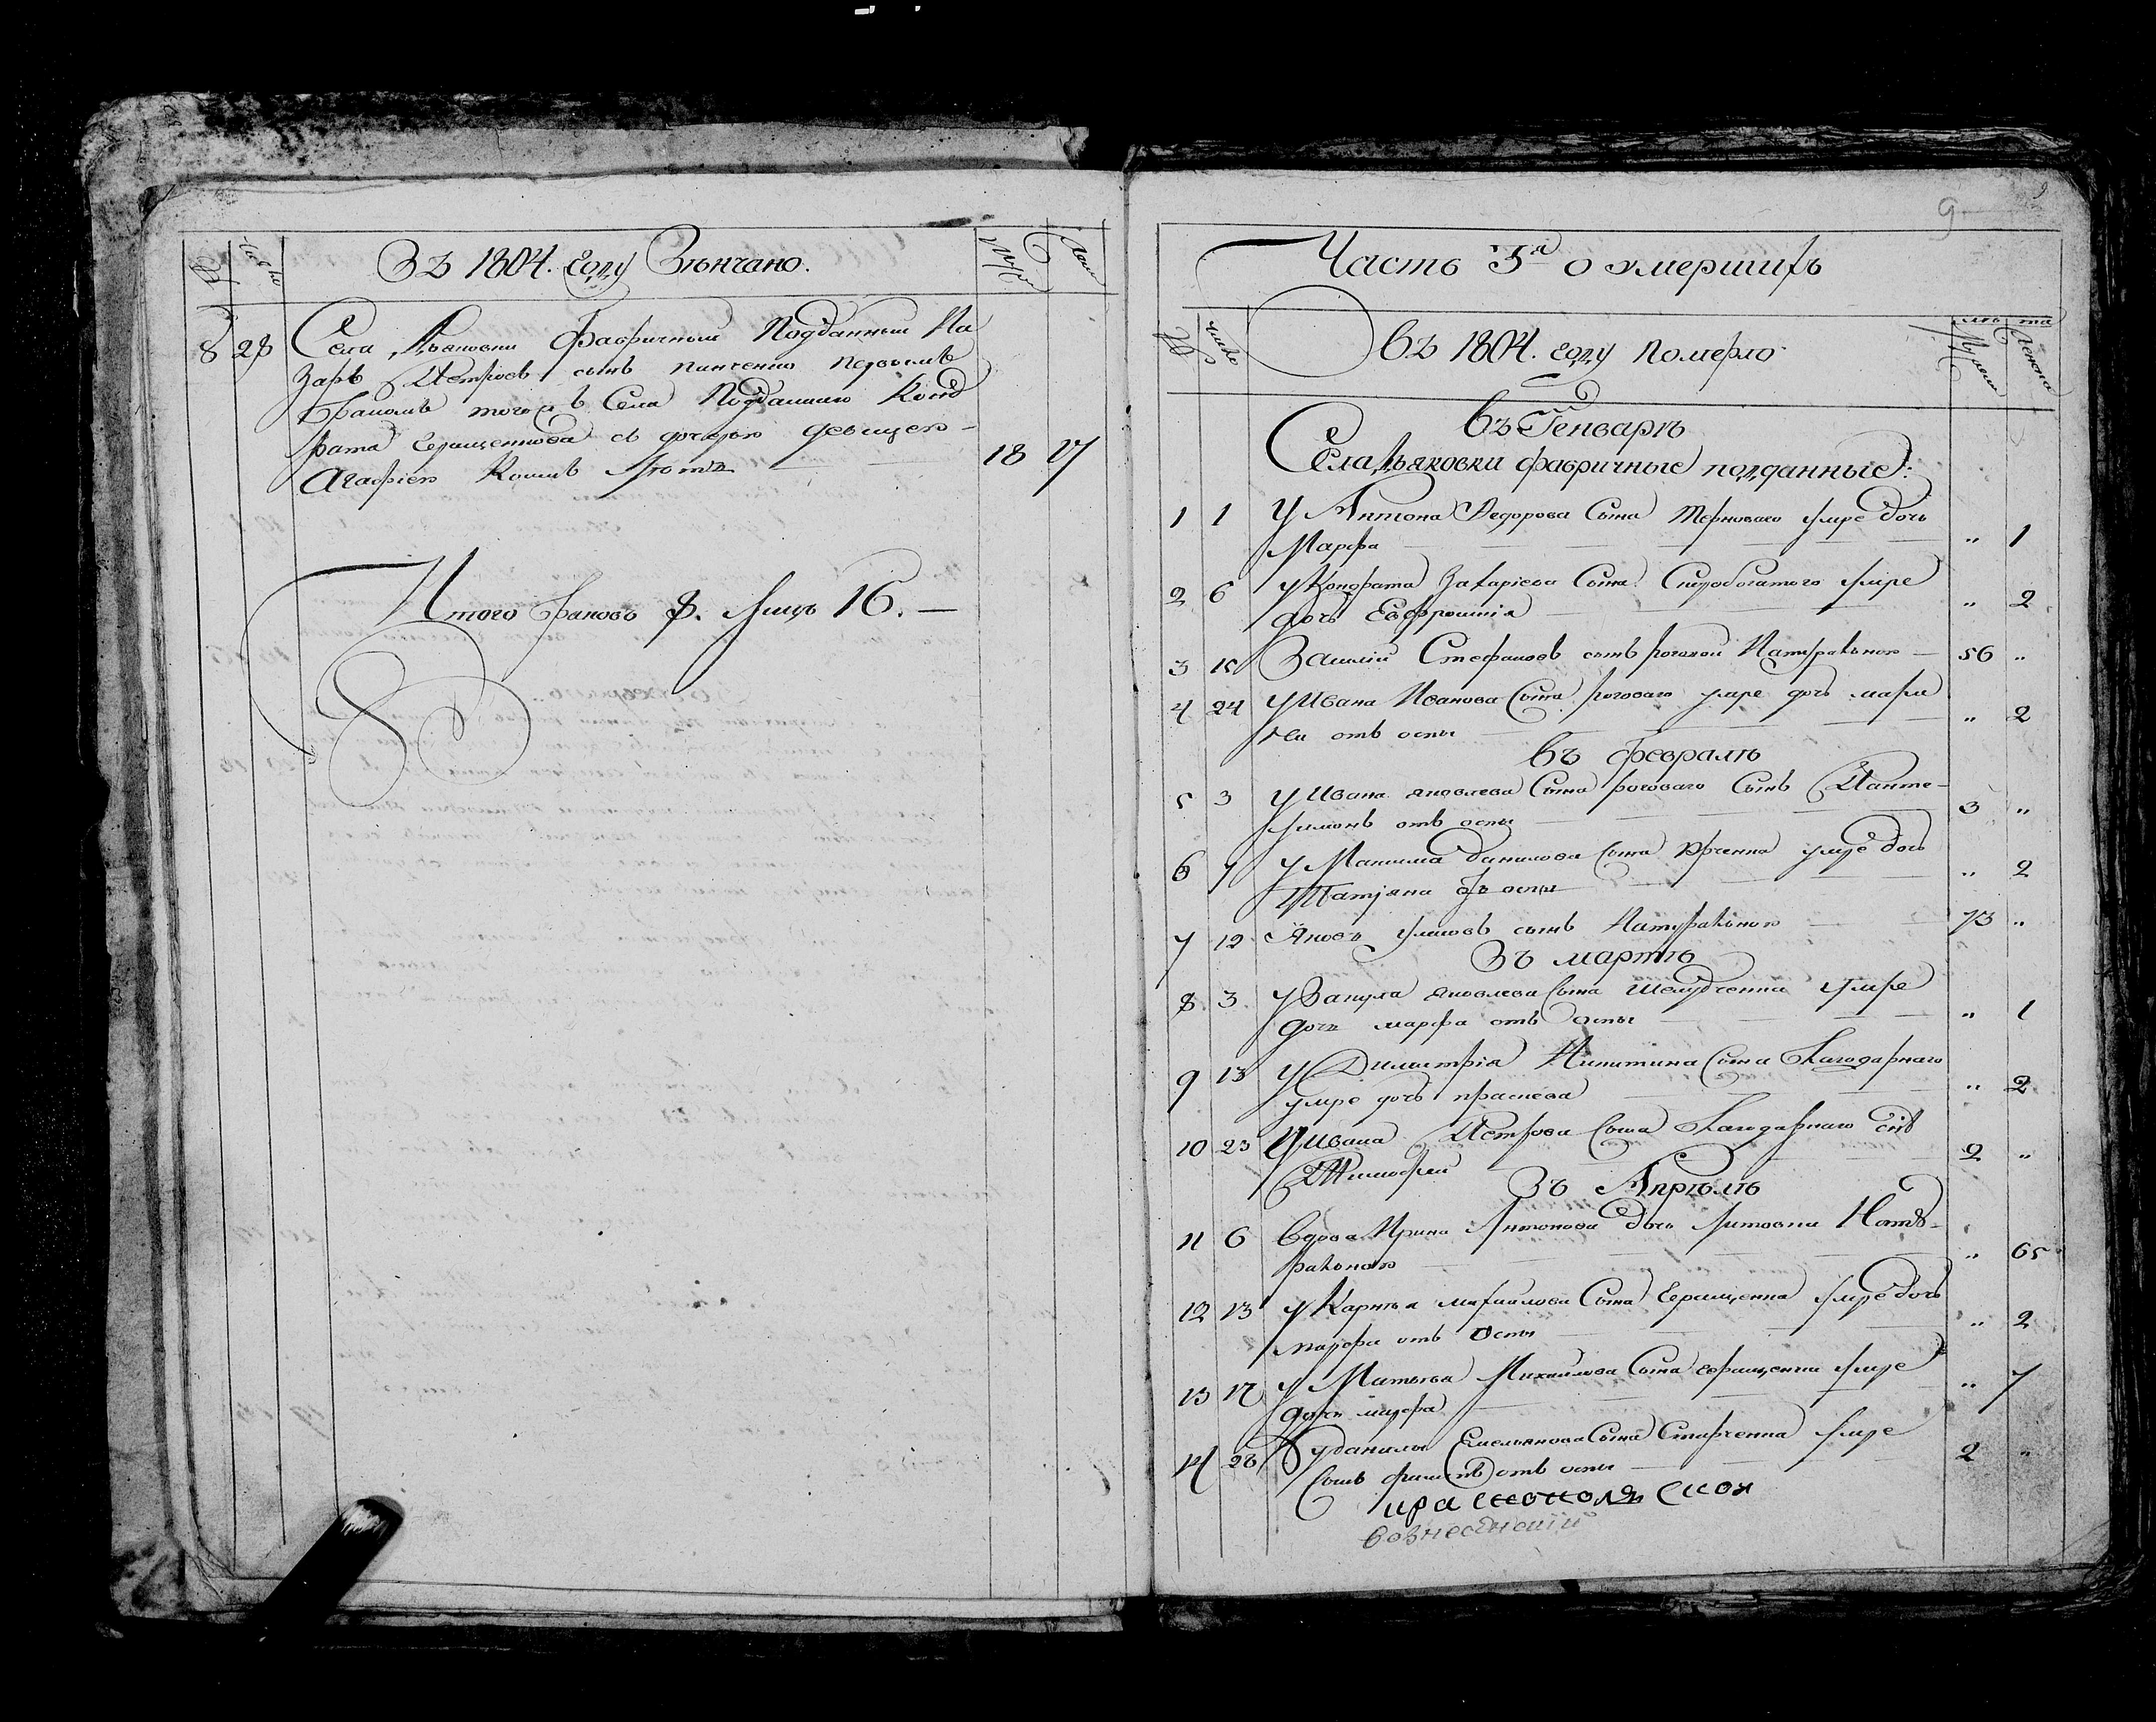 Въ 1804. году Вѣнчано.
8 28 Села Дьяковки Фабричный Подданный На
заръ Петровъ сынъ первымъ
бракомъ тогожъ Села Подданного Конд
рата Геращенкова съ дочерью девицею
Агафіею 18 17
Итого браковъ 8. лицъ 16.
9
Часть 3я о умершихъ
Въ 1804. году Померло
число лѣ та
въ Генварѣ
Села Дьяковки фабричные подданные:
1 1 У Антона Федорова Сына Терноваго умре дочь
Марфа " 1
2 6 У Кондрата Захаріева Сына Скоробогатого умре
дочь Евфросинія " 2
3 15 Василій Стефановъ сынъ роговой Натурально 56 "
4 24 У Ивана Иванова Сына роговаго умре дочь мари
на отъ оспы " 2
въ Февралѣ
5 3 У Ивана яковлева Сына роговаго Сынъ Панте-
лимонъ отъ оспы 3 "
6 7 У Максима данилова сына Юрченка умре дочь
Татіяна отъ оспы " 2
7 12 Яковъ сынъ Натурально 73 "
Въ мартѣ
8 3 У Вакула яковлева сына Шелудченка умре
дочь марфа отъ Оспы " 1
9 13 У Димитрія Никитина сына Благодарнаго
умре дочь праскева " 2
10 23 У Ивана Петрова сына Благодарнаго снъ
Тимофей 2 "
Въ Апрѣлѣ
11 6 Вдова Ирина Антонова дочь Натѣ-
рально " 65
12 13 У Карпа михайлова Сына Геращенка умре дочь
марфа отъ Оспы " 2
13 17 У Матвѣя Михайлова Сына геращенка умре
дочь марфа " 7
14 28 У данилы Емельянова Сына Старченка умре
сынъ отъ оспы 2 "
краснопольской
вознесенскій